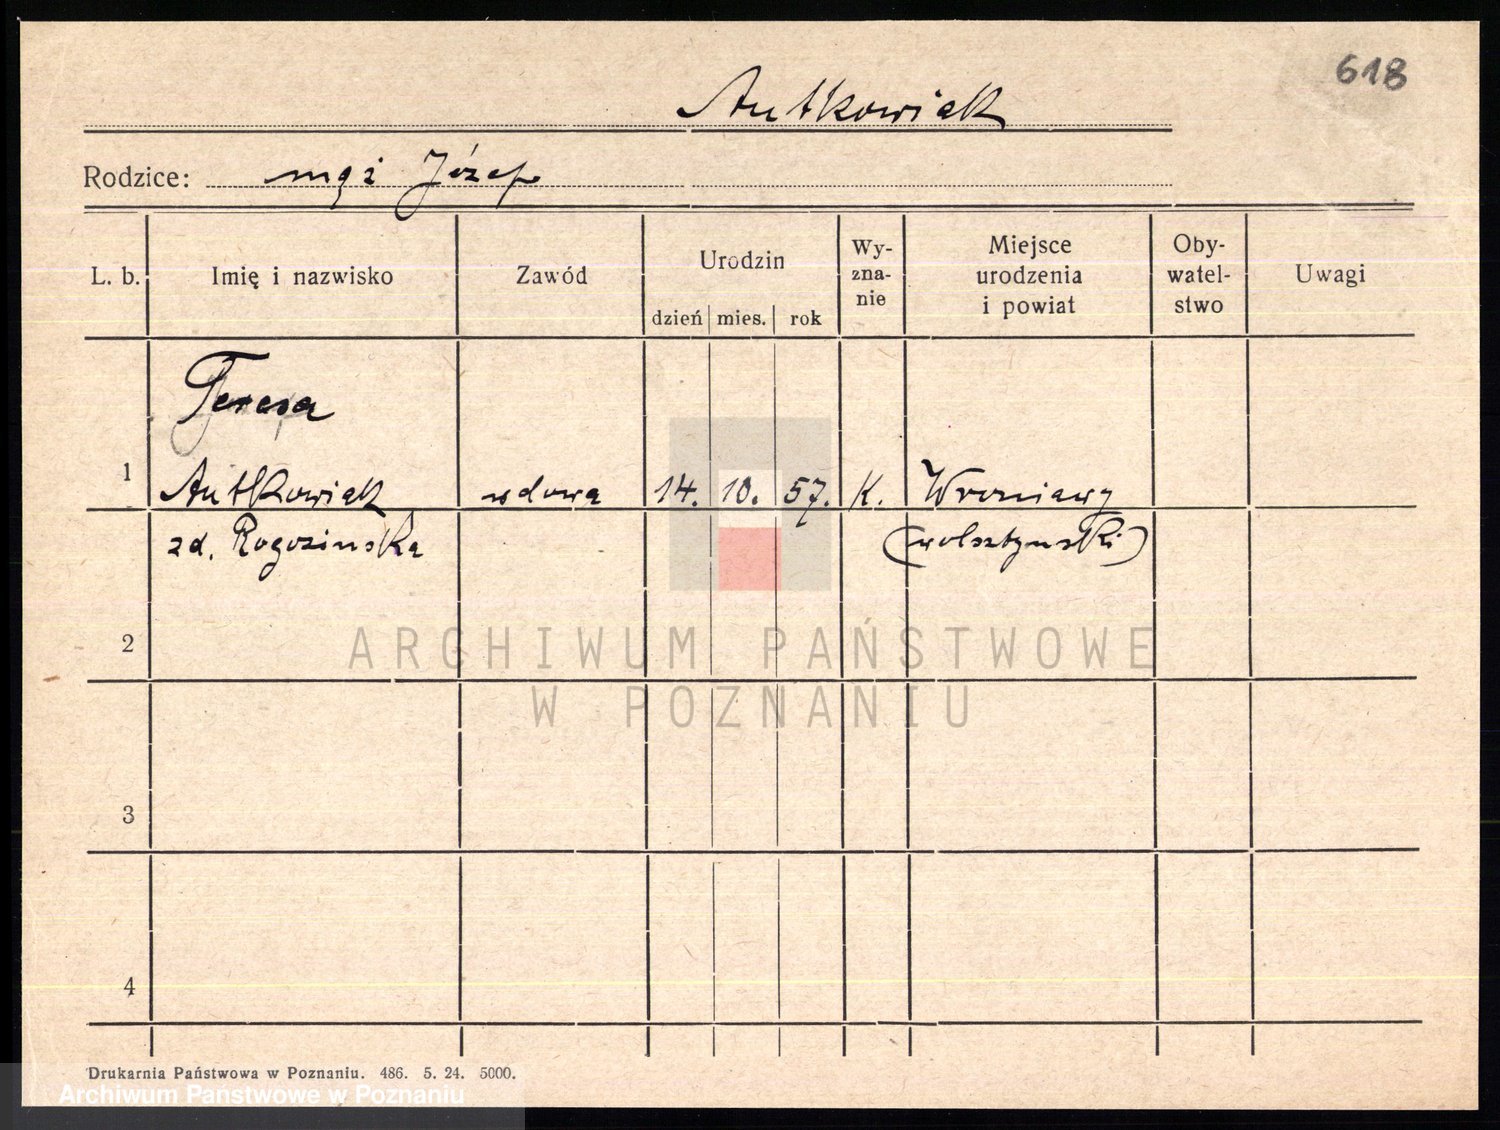 618
Antkowiak
Rodzice: mąż Józef
L. b. Imię i nazwisko Zawód Urodzin dzień mies. rok Wy-zna-nie Miejsce urodzenia i powiat Oby-watel-stwo Uwagi
Teresa
1 Antkowiak wdowa 14. 10. 57. K. Wroniawy
zd. Rogozinska (wolsztynski)
2
ARCHIWUM PAŃSTWOWE
W POZNANIU
3
4
Drukarnia Państwowa w Poznaniu. 486. 5. 24. 5000.
Archiwum Państwowe w Poznaniu